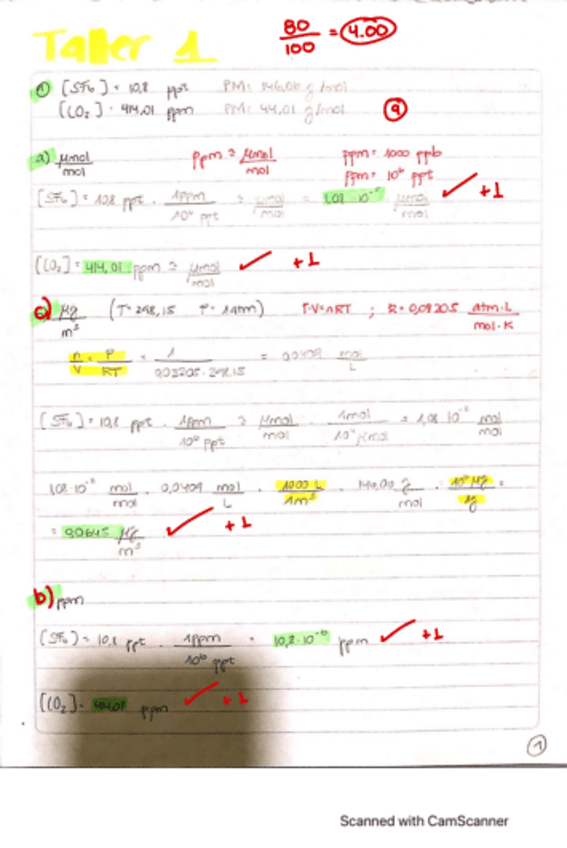 Taller 1
80/100 = 4.00
① [SF₆] = 10,8 ppt PM: 146,06 g/mol
[CO₂] = 414,01 ppm PM: 44,01 g/mol
9
a) μmol/mol ppm ≡ μmol/mol ppm = 1000 ppb
ppm = 10⁶ ppt
[SF₆] = 10,8 ppt · 1ppm/10⁶ ppt ≡ μmol/mol = μmol/mol ✓ +1
[CO₂] = 414,01 ppm ≡ μmol/mol ✓ +1
c) μg/m³ (T = 298,15 P = 1 atm) P·V = nRT ; R = 0,08205 atm·L/mol·K
n/V = P/RT = 1/0,08205·298,15 = 0,0409 mol/L
[SF₆] = 10,8 ppt · 1ppm/10⁶ ppt ≡ μmol/mol · 1mol/10⁶ μmol = mol/mol
mol/mol · 0,0409 mol/L · 1000 L/1m³ · g/mol · 10⁶ μg/1g =
= 0,0645 μg/m³ ✓ +1
b) ppm
[SF₆] = 10,8 ppt · 1ppm/10⁶ ppt = 10,8·10⁻⁶ ppm ✓ +1
[CO₂] = 414,01 ppm ✓ +1
1
Scanned with CamScanner